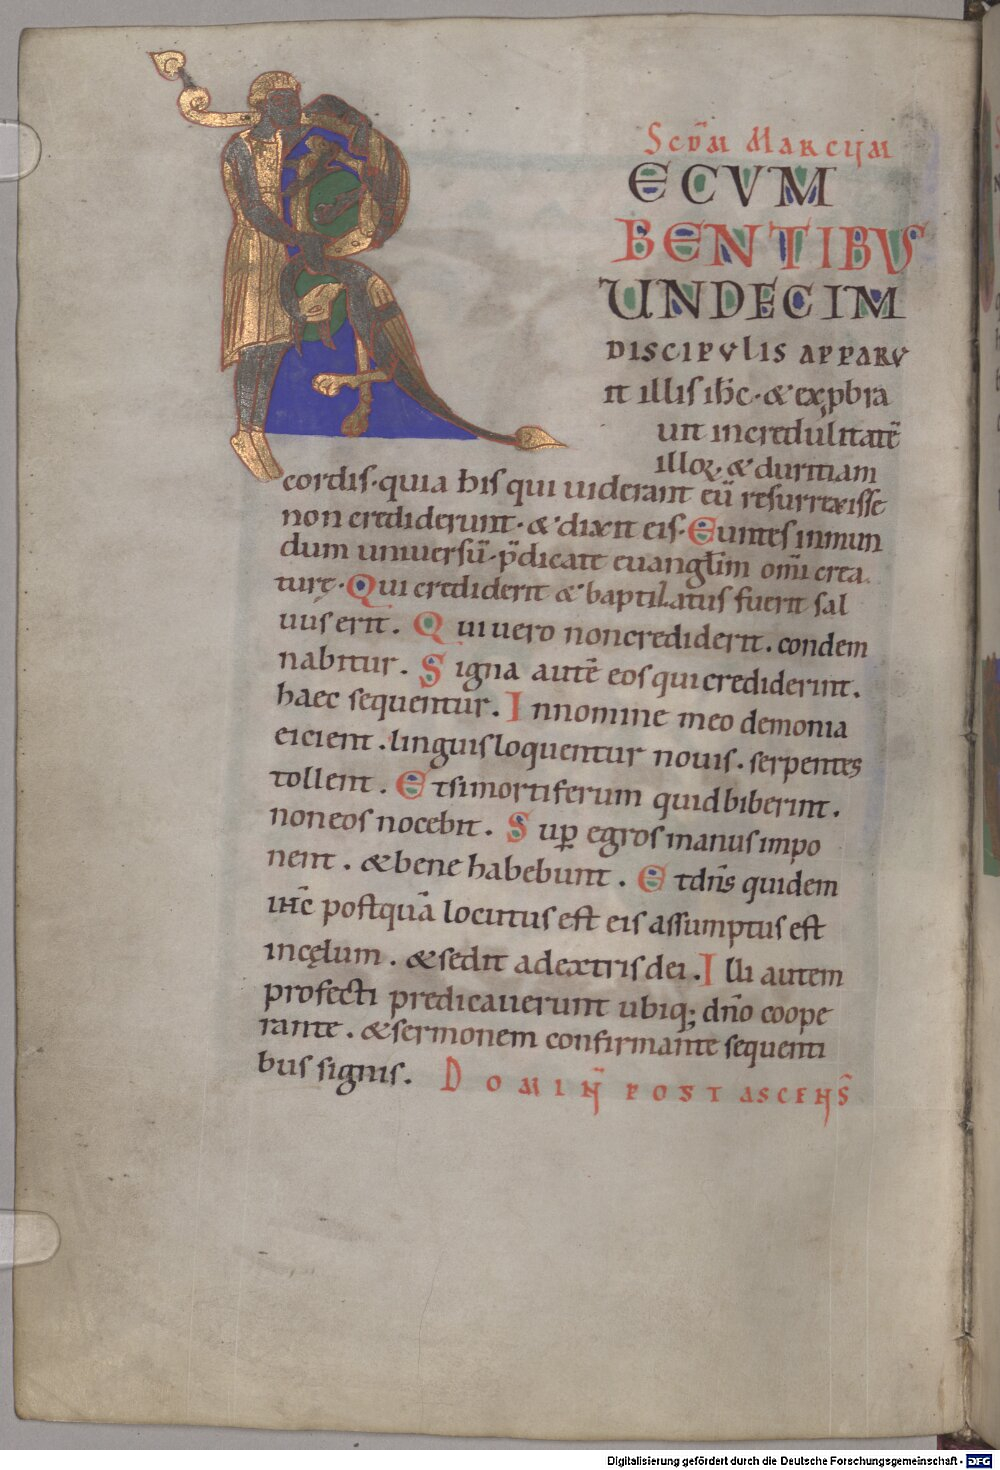 Scd̄m Marcum
RECUM
BENTIBUS
UNDECIM
DISCIPULIS APPARU
it illis ihc̄. & exp̱bra
uit incredulitatē
illoꝝ. & duritiam
cordis. quia his qui uiderant eū resurrexisse
non crediderunt. & dixit eis. Euntes in mun
dum uniuersū. p̄dicate euangl̄im om̄i crea
turę. Qui crediderit & baptizatus fuerit sal
uus erit. Qui uero non crediderit. condem
nabitur. Signa autē eos qui crediderint.
haec sequentur. In nomine meo demonia
eicient. linguis loquentur nouis. serpentes
tollent. Et si mortiferum quid biberint.
non eos nocebit. Sup̱ egros manus impo
nent. & bene habebunt. Et dn̄s quidem
ihc̄ postquā locutus est eis assumptus est
in cęlum. & sedit a dextris dei. Illi autem
profecti predicauerunt ubiq; dn̄o coope
rante. & sermonem confirmante sequenti
bus signis. DOMIN̄ POST ASCENS̄
Digitalisierung gefördert durch die Deutsche Forschungsgemeinschaft - DFG